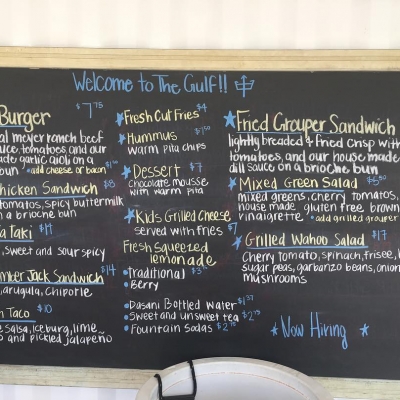 Welcome to The Gulf!!
Burger $7.75
al meyer ranch beef
uce, tomatoes and our
ade garlic aioli on a
bun *add cheese or bacon
chicken Sandwich $8
tomatoes, spicy buttermilk
n a brioche bun
a Taki $14
, sweet and sour spicy
mber Jack Sandwich $14
arugula, chipotle
n Taco $10
e salsa, iceburg, lime
o and pickled jalapeño
Fresh Cut Fries $4
Hummus
warm pita chips
Dessert $7
chocolate mousse
with warm pita
Kids Grilled Cheese
served with fries $7
Fresh squeezed
lemonade
Traditional
Berry
Dasani Bottled Water
Sweet and unsweet tea
Fountain Sodas
Fried Grouper Sandwich
lightly breaded & fried crisp with
tomatoes, and our house made
dill sauce on a brioche bun
Mixed Green Salad
mixed greens, cherry tomatoes,
house made gluten free brown
vinaigrette *add grilled grouper
Grilled Wahoo Salad $17
Cherry tomato, spinach, frisee,
sugar peas, garbanzo beans, onion
mushrooms
* Now Hiring *